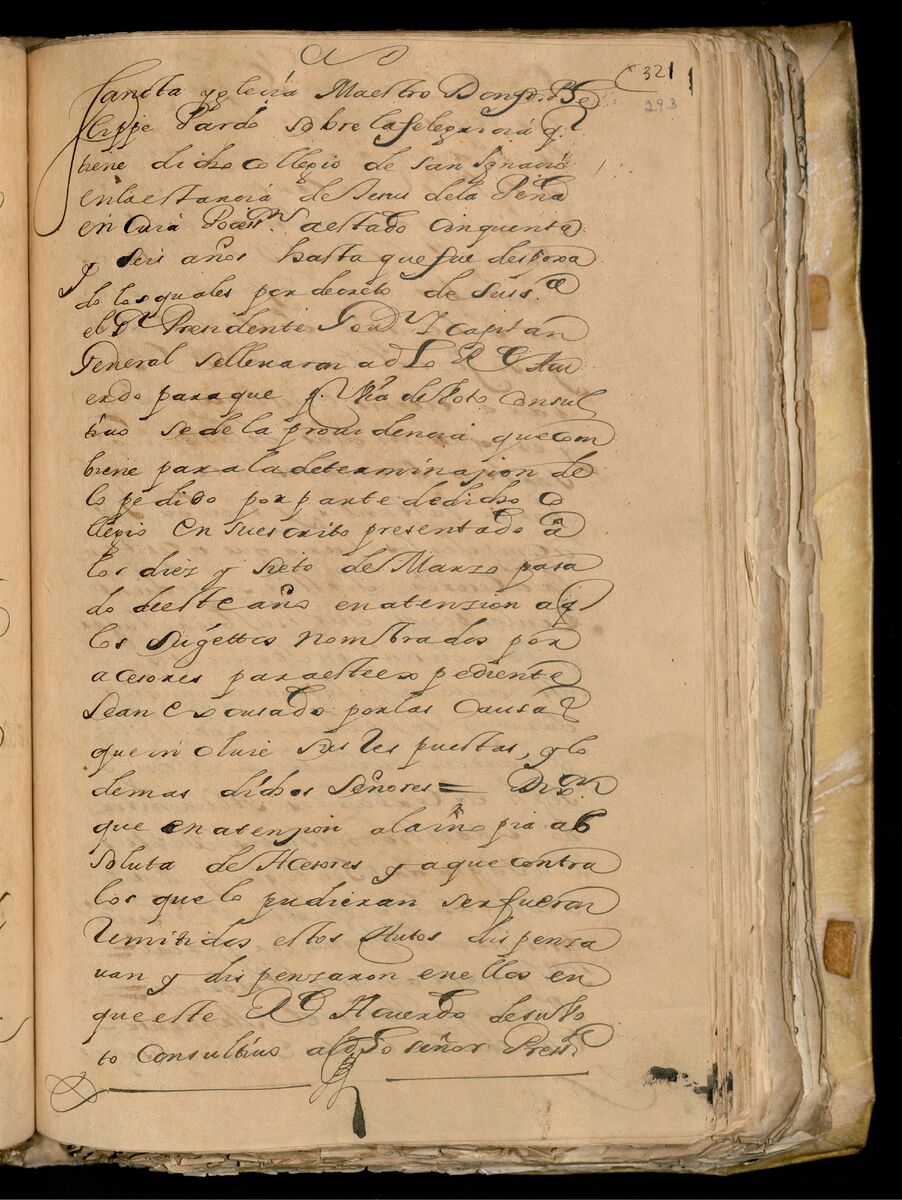 321
293
sancta yglecia Maestro Don Phe
lippe Pardo sobre la feligrecia q.e
tiene dicho collegio de san Ygnacio
en la estancia de Jesus de la Peña
en cuia Pocess.n a estado cinquenta
y seis años hasta que fue despoxa
do los quales por decreto de su s.a
el S.r Presidente Gou.r Y capitan
General se lleuaron a el R. Acu
erdo para que p. Via de Voto Consul
tiuo se de la prouidencia que com
biene para la determinazion de
lo pedido por parte de dicho co
llegio en su escrito presentado â
los diez y siete de Marzo pasa
do deeste año en atension a q.
los sugettos nombrados por
acesores para este expediente
sean excusado por las causas
que incluie sus respuestas, y lo
demas dichos Señores = Dix.on
que en atension a la ino pia ab
soluta de Acesores y a que contra
los que lo pudieran ser fueron
Remitidos estos Autos dispenza
uan y dispenzaron en ellos en
que este Rl Acuerdo de su Vo
to Consultiuo a dho señor Presi